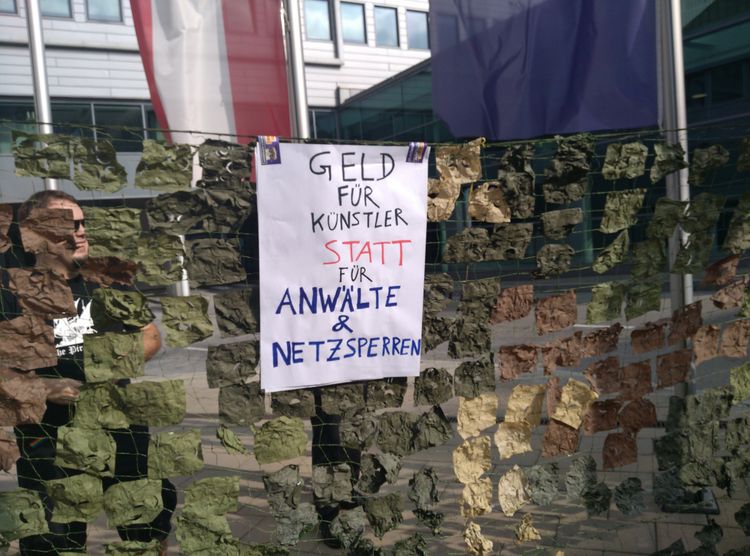 GELD
FÜR
KÜNSTLER
STATT
FÜR
ANWÄLTE
&
NETZSPERREN